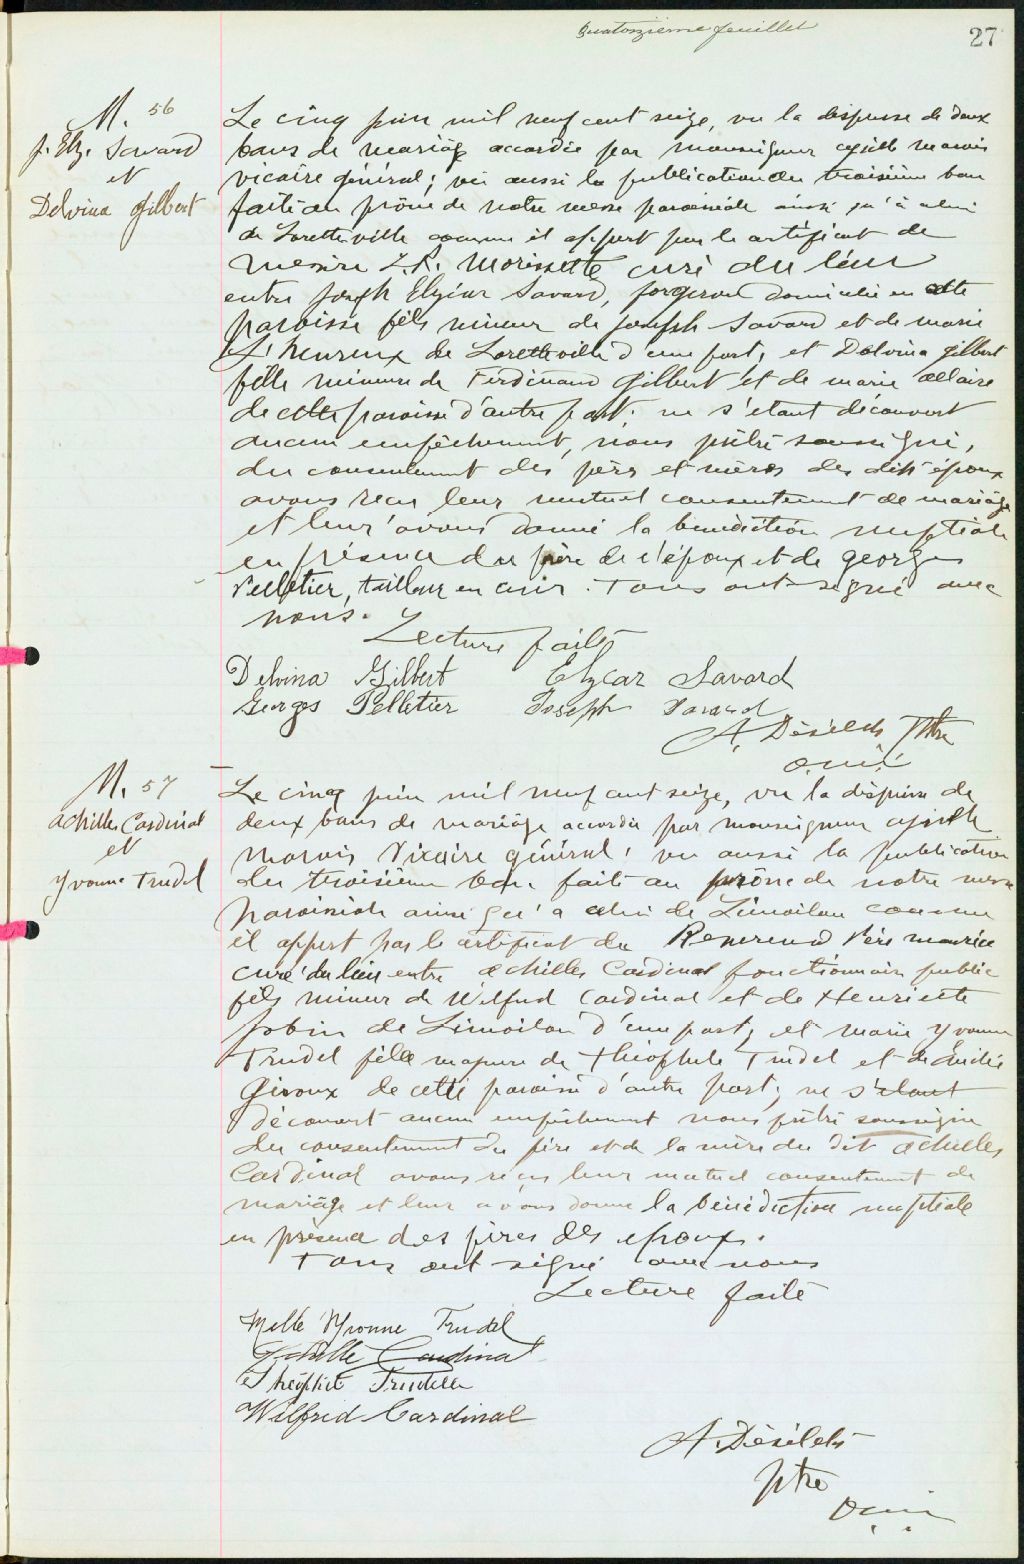 Quatorzième feuillet
27
M. 56
J. Elz. Savard
et
Delvina Gilbert
Le cinq juin mil neuf cent seize, vu la dispense de deux
bans de mariage accordée par monseigneur marois
vicaire général; vu aussi la publication du troisième ban
faite au prône de notre messe paroissiale ainsi qu'à celui
de Loretteville comme il appert par le certificat de
messire J. R. Morissette curé du lieu
entre Joseph Elzéar Savard, forgeron domicilié en cette
paroisse fils mineur de joseph Savard et de marie
L'heureux de Loretteville d'une part, et Delvina gilbert
fille mineure de Ferdinand Gilbert et de marie allaire
de cette paroisse d'autre part; ne s'etant découvert
aucun empêchement, nous prêtre soussigné,
du consentement des pères et mères des dits époux
avons reçu leur mutuel consentement de mariage
et leur avons donné la bénédiction nuptiale
en présence du père de l'époux et de georges
Pelletier, tailleur en cuir. Tous ont signé avec
nous. Lecture faite
Delvina Gilbert Elzear Savard
Georges Pelletier Joseph Savard
A. Désilets Ptre
o.m.i.
M. 57
achilles Cardinal
et
Yvonne Trudel
Le cinq juin mil neuf cent seize, vu la dispense de
deux bans de mariage accordée par monseigneur
Marois Vicaire général; vu aussi la publication
du troisième ban faite au prône de notre messe
paroissiale ainsi qu'a celui de Limoilou comme
il appert par le certificat du Reverend Père maurice
curé du lieu entre achilles Cardinal fonctionnaire public
fils mineur de Wilfrid Cardinal et de Henriette
Jobin de Limoilou d'une part, et marie Yvonne
Trudel fille majeure de théophile Trudel et de
Giroux de cette paroisse d'autre part; ne s'étant
découvert aucun empêchement nous prêtre soussigné
du consentement du père et de la mère du dit achilles
Cardinal avons reçu leur mutuel consentement de
mariage et leur avons donné la bénédiction nuptiale
en présence des pères des époux.
Tous ont signé avec nous
Lecture faite
Melle Yvonne Trudel
Achille Cardinal
Théophile Trudelle
Wilfrid Cardinal
A. Désilets
ptre
o.m.i.